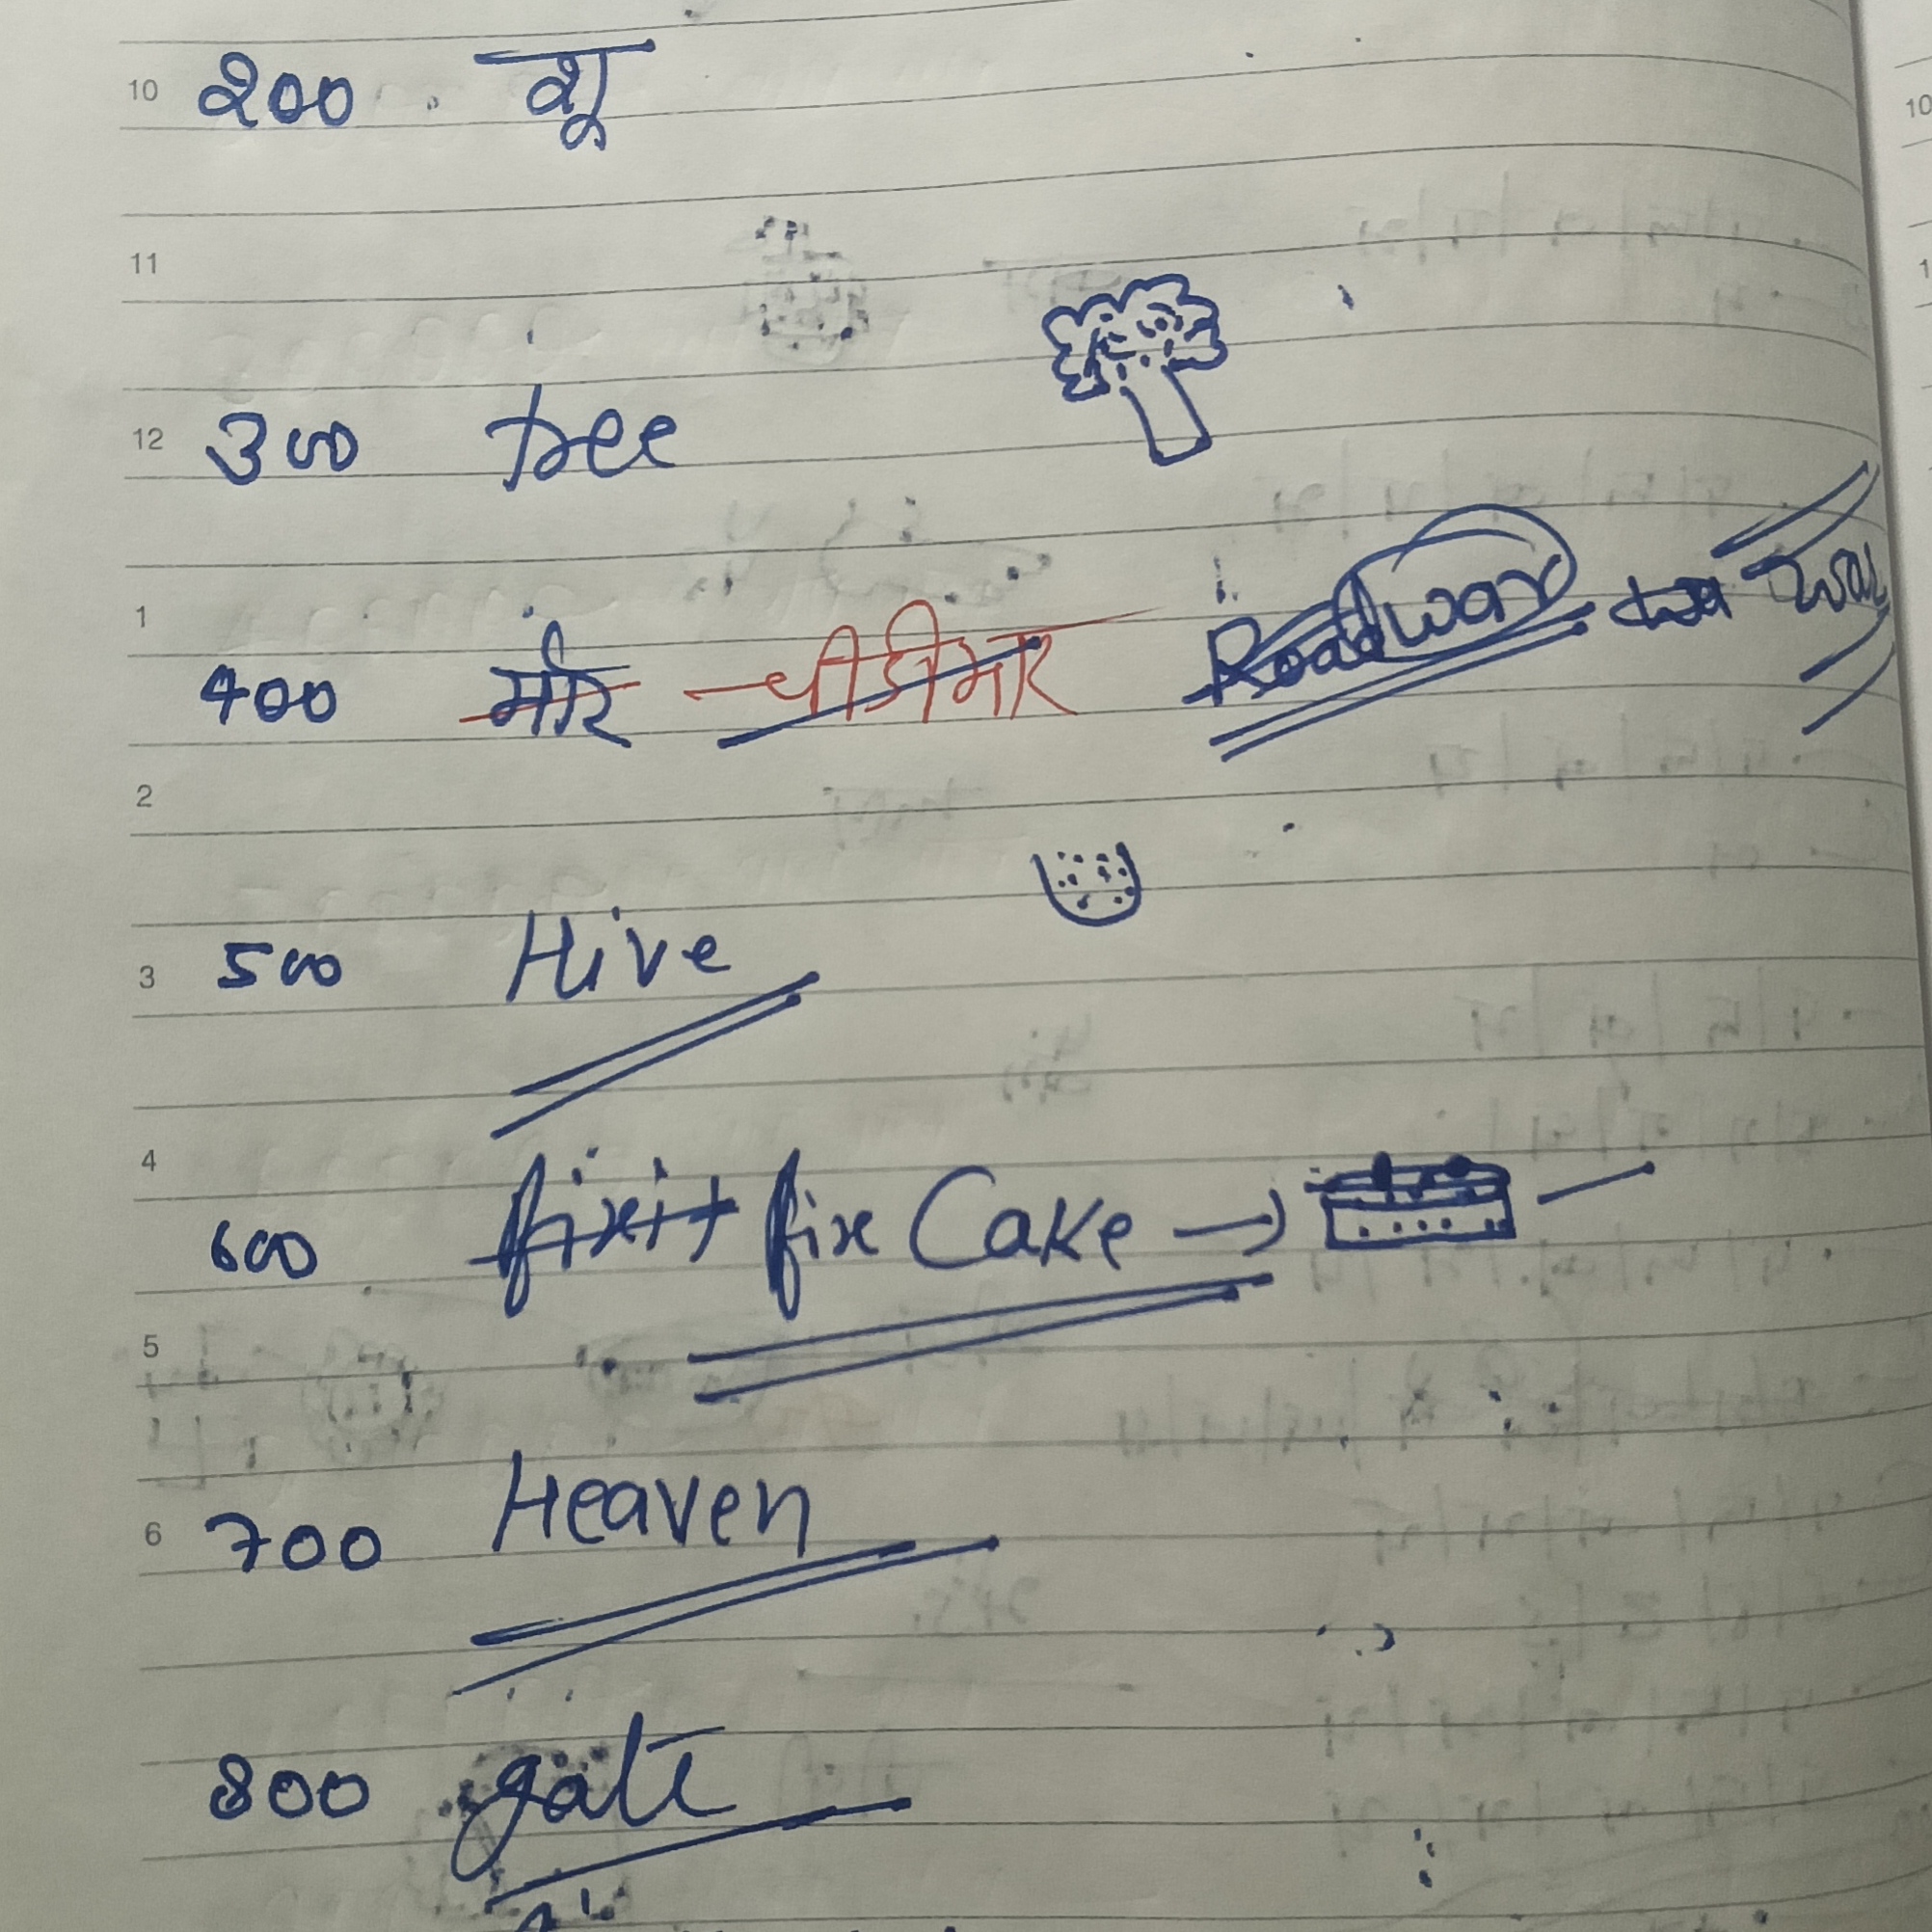 10 200 शू
11
12 300 tree
1
400 मोर Roadwar war
2
3 500 Hive
4
600 fixit fix Cake →
5
6 700 Heaven
800 gate